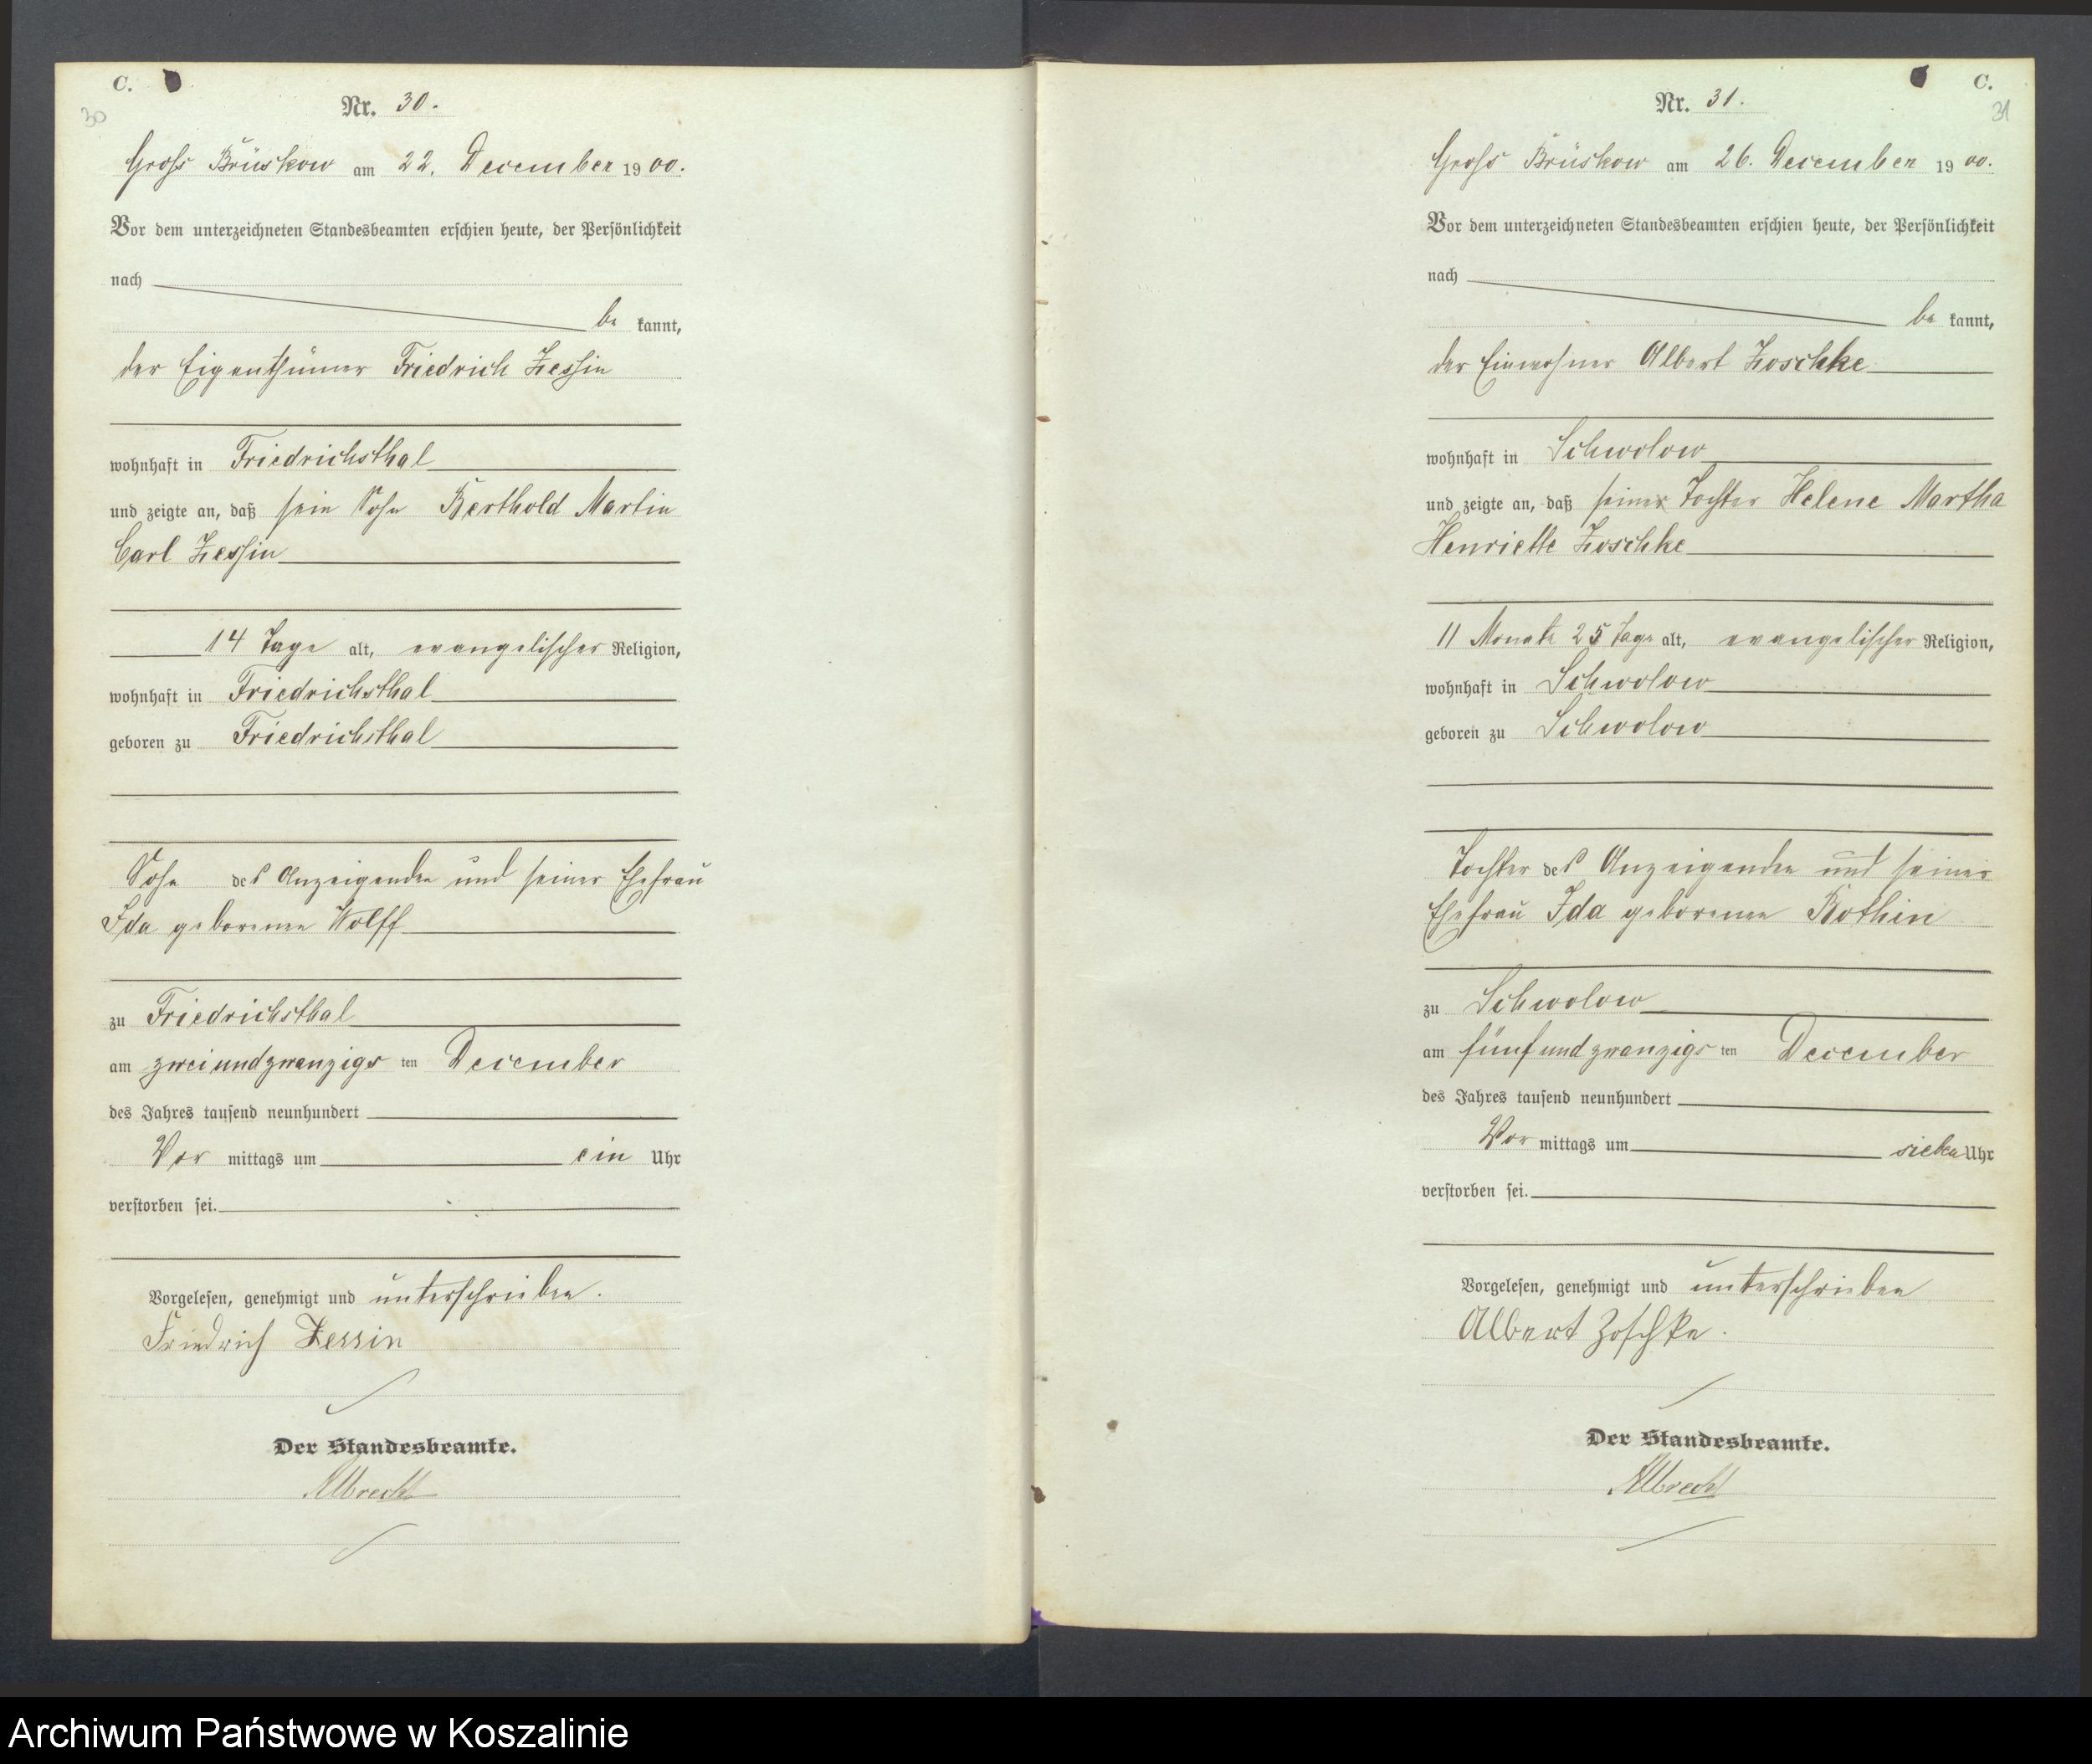 C.
30
Nr. 30.
Gross Brüskow am 22. December 1900.
Vor dem unterzeichneten Standesbeamten erschien heute, der Persönlichkeit
nach
be kannt,
der Eigenthümer Friedrich Zessin
wohnhaft in Friedrichsthal
und zeigte an, daß sein Sohn Berthold Martin
Carl Zessin
14 Tage alt, evangelischer Religion,
wohnhaft in Friedrichsthal
geboren zu Friedrichsthal
Sohn des Anzeigenden und seiner Ehefrau
Ida geborenen Wolff
zu Friedrichsthal
am zweiundzwanzigs ten December
des Jahres tausend neunhundert
Vor mittags um ein Uhr
verstorben sei.
Vorgelesen, genehmigt und unterschrieben.
Friedrich Zessin
Der Standesbeamte.
Albrecht
C.
31
Nr. 31.
Gross Brüskow am 26. December 1900.
Vor dem unterzeichneten Standesbeamten erschien heute, der Persönlichkeit
nach
be kannt,
der Einwohner Albert Zoschke
wohnhaft in Schwolow
und zeigte an, daß seine Tochter Helene Martha
Henriette Zoschke
11 Monate 25 Tage alt, evangelischer Religion,
wohnhaft in Schwolow
geboren zu Schwolow
Tochter des Anzeigenden und seiner
Ehefrau Ida geborenen Bothin
zu Schwolow
am fünfundzwanzigs ten December
des Jahres tausend neunhundert
Vor mittags um sieben Uhr
verstorben sei.
Vorgelesen, genehmigt und unterschrieben
Albert Zoschke.
Der Standesbeamte.
Albrecht
Archiwum Państwowe w Koszalinie